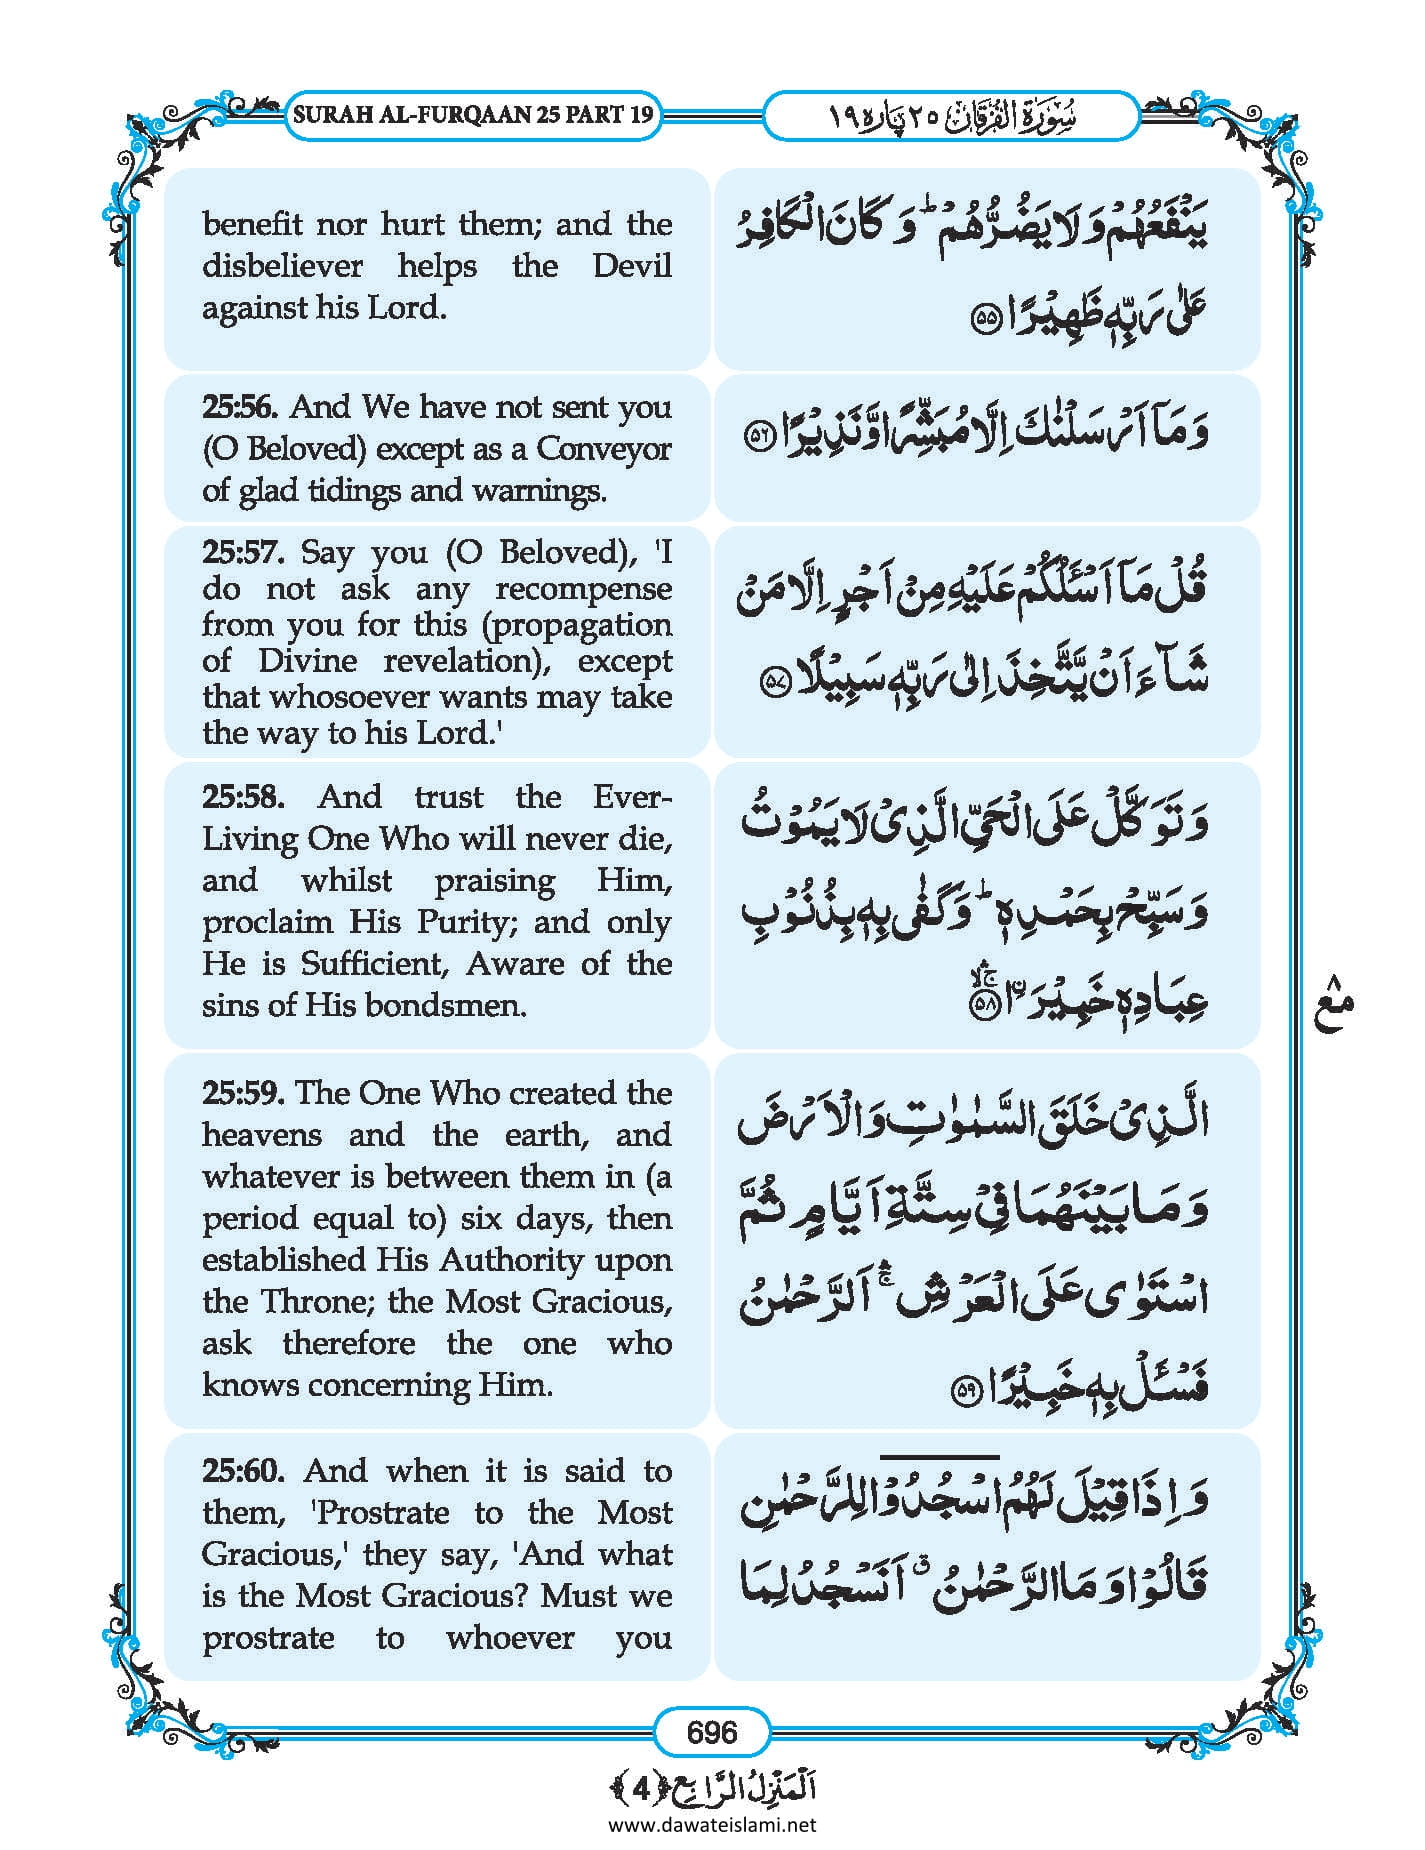 SURAH AL-FURQAAN 25 PART 19
سُوْرَةُ الْفُرْقَان ٢٥ پَاره ١٩
benefit nor hurt them; and the
disbeliever helps the Devil
against his Lord.
يَنْفَعُهُمْ وَلَا يَضُرُّهُمْ ؕ وَ كَانَ الْكَافِرُ
عَلٰى رَبِّهٖ ظَهِيْرًا ﴿۵۵﴾
25:56. And We have not sent you
(O Beloved) except as a Conveyor
of glad tidings and warnings.
وَ مَاۤ اَرْسَلْنٰكَ اِلَّا مُبَشِّرًا وَّ نَذِيْرًا ﴿۵۶﴾
25:57. Say you (O Beloved), 'I
do not ask any recompense
from you for this (propagation
of Divine revelation), except
that whosoever wants may take
the way to his Lord.'
قُلْ مَاۤ اَسْـَٔلُكُمْ عَلَيْهِ مِنْ اَجْرٍ اِلَّا مَنْ
شَآءَ اَنْ يَّتَّخِذَ اِلٰى رَبِّهٖ سَبِيْلًا ﴿۵۷﴾
25:58. And trust the Ever-
Living One Who will never die,
and whilst praising Him,
proclaim His Purity; and only
He is Sufficient, Aware of the
sins of His bondsmen.
وَ تَوَكَّلْ عَلَى الْحَيِّ الَّذِيْ لَا يَمُوْتُ
وَ سَبِّحْ بِحَمْدِهٖ ؕ وَ كَفٰى بِهٖ بِذُنُوْبِ
عِبَادِهٖ خَبِيْرَۨا ﴿۵۸﴾ۚۛۙ
مع ٨
25:59. The One Who created the
heavens and the earth, and
whatever is between them in (a
period equal to) six days, then
established His Authority upon
the Throne; the Most Gracious,
ask therefore the one who
knows concerning Him.
الَّذِيْ خَلَقَ السَّمٰوٰتِ وَ الْاَرْضَ
وَ مَا بَيْنَهُمَا فِيْ سِتَّةِ اَيَّامٍ ثُمَّ
اسْتَوٰى عَلَى الْعَرْشِ ۚۛ اَلرَّحْمٰنُ
فَسْـَٔلْ بِهٖ خَبِيْرًا ﴿۵۹﴾
25:60. And when it is said to
them, 'Prostrate to the Most
Gracious,' they say, 'And what
is the Most Gracious? Must we
prostrate to whoever you
وَ اِذَا قِيْلَ لَهُمُ اسْجُدُوْا لِلرَّحْمٰنِ
قَالُوْا وَ مَا الرَّحْمٰنُ ۗ اَنَسْجُدُ لِمَا
696
اَلْمَنْزِلُ الرَّابِع ﴿4﴾
www.dawateislami.net